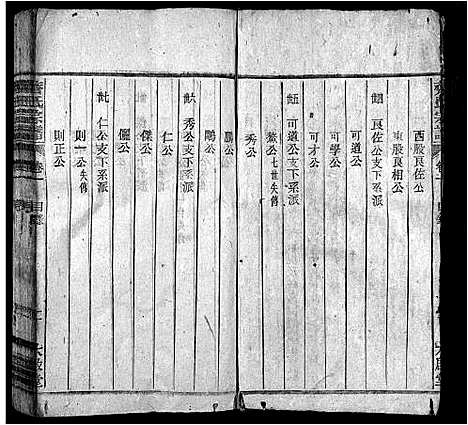 西股良佐公
東股良相公
良佐公支下系派
可道公
可學公
可才公
可道公支下系派
公七世失傳
秀公
鵬公
鵰公
秀公支下系派
仁公
傑公
儷公
仁公支下系派
則一公失傳
則正公
氏宗譜
卷一
目錄